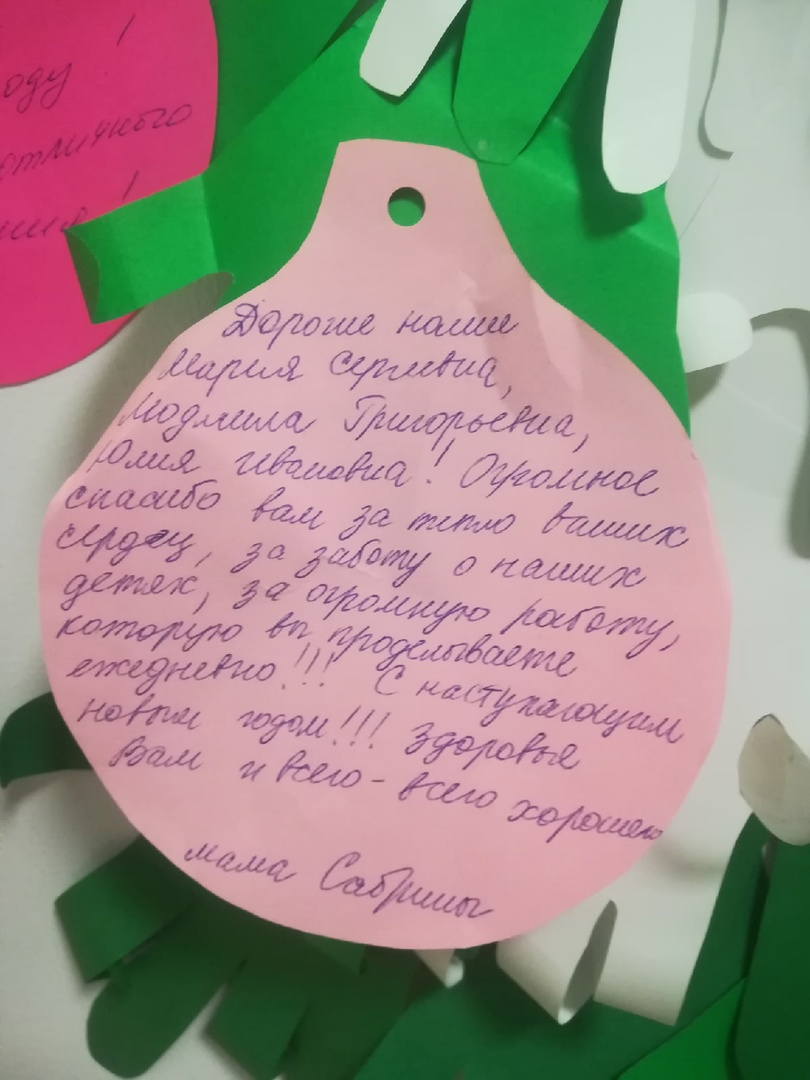 оду !
отличного
!
Дорогие наши
Мария Сергеевна,
Людмила Григорьевна,
Юлия Ивановна! Огромное
спасибо вам за тепло ваших
сердец, за заботу о наших
детях, за огромную работу,
которую вы проделываете
ежедневно!!! С наступающим
новым годом!!! Здоровья
Вам и всего-всего хорошего
мама Сабрины